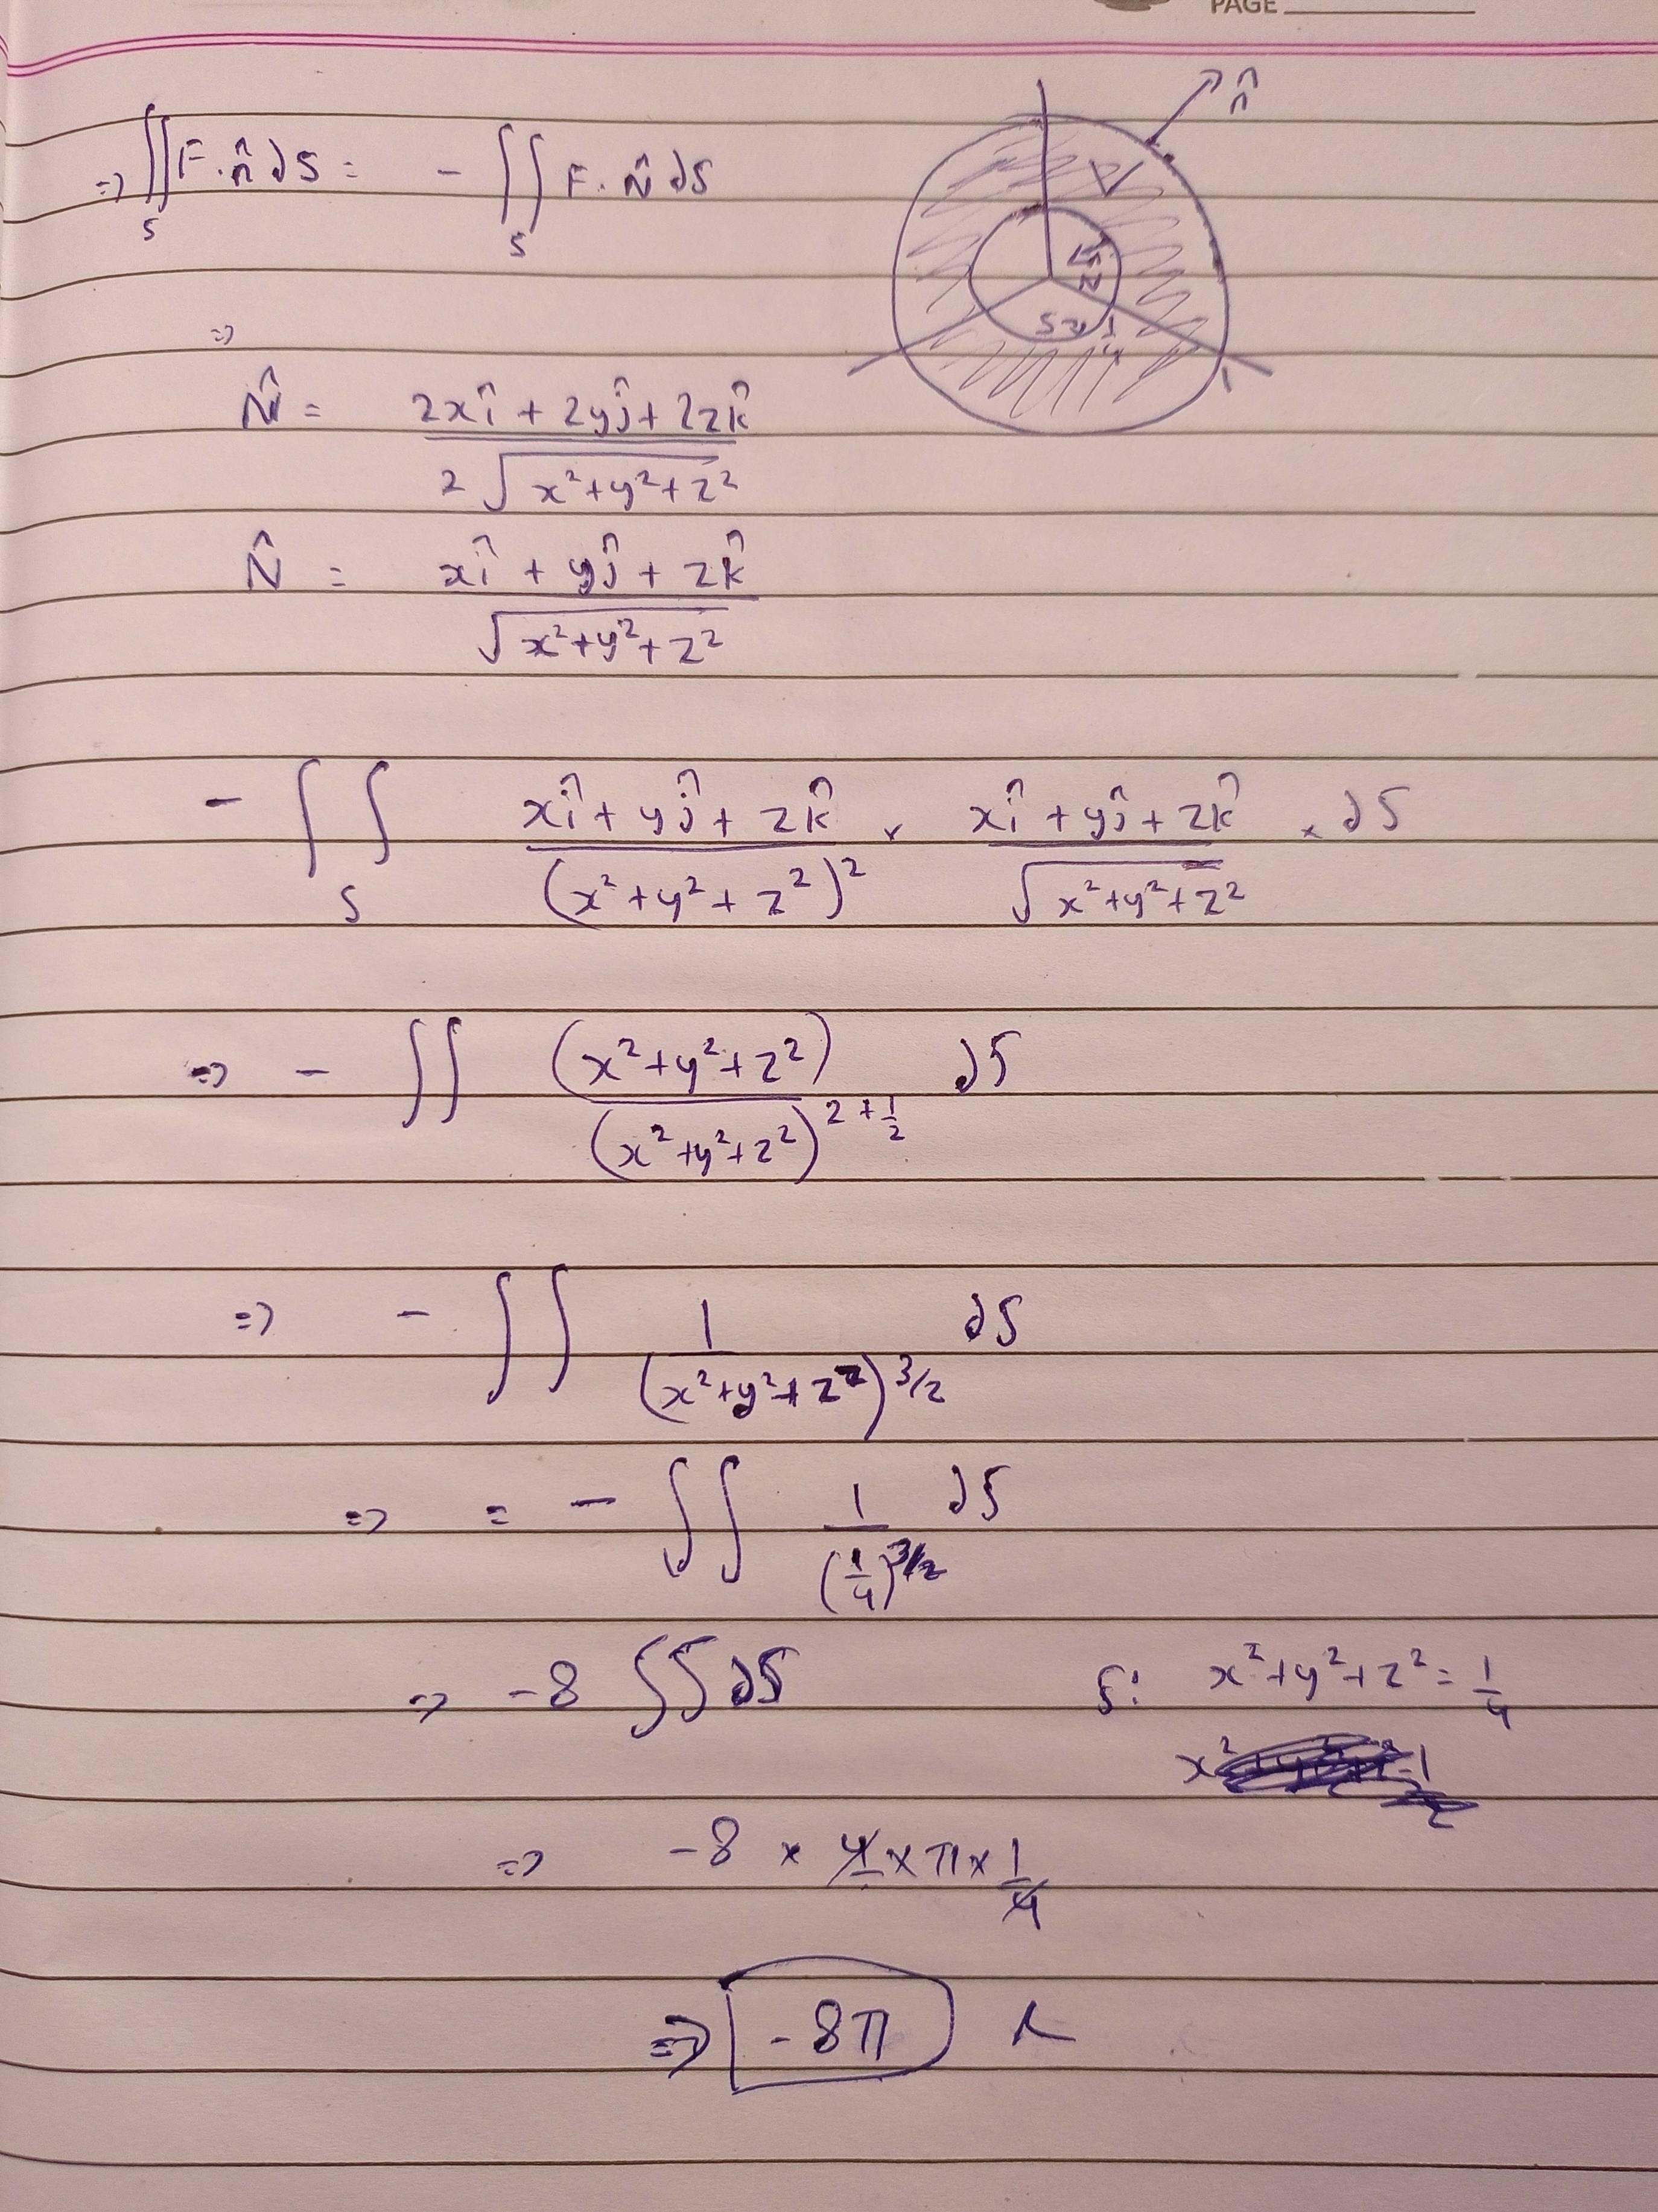 PAGE
n̂
⇒ ∬_S F · n̂ dS = - ∬_S F · N̂ dS
V
N̂
S
1/4
1
⇒
N̂ = (2xî + 2yĵ + 2zk̂) / (2√(x²+y²+z²))
N̂ = (xî + yĵ + zk̂) / √(x²+y²+z²)
- ∬_S (xî + yĵ + zk̂) / (x²+y²+z²)² × (xî + yĵ + zk̂) / √(x²+y²+z²) × dS
⇒ - ∬ (x²+y²+z²) / (x²+y²+z²)^(2+1/2) dS
⇒ - ∬ 1 / (x²+y²+z²)^(3/2) dS
⇒ = - ∬ 1 / (1/4)^(3/2) dS
⇒ -8 ∬ dS S: x²+y²+z² = 1/4
⇒ -8 × 4 × π × 1/4
⇒ -8π